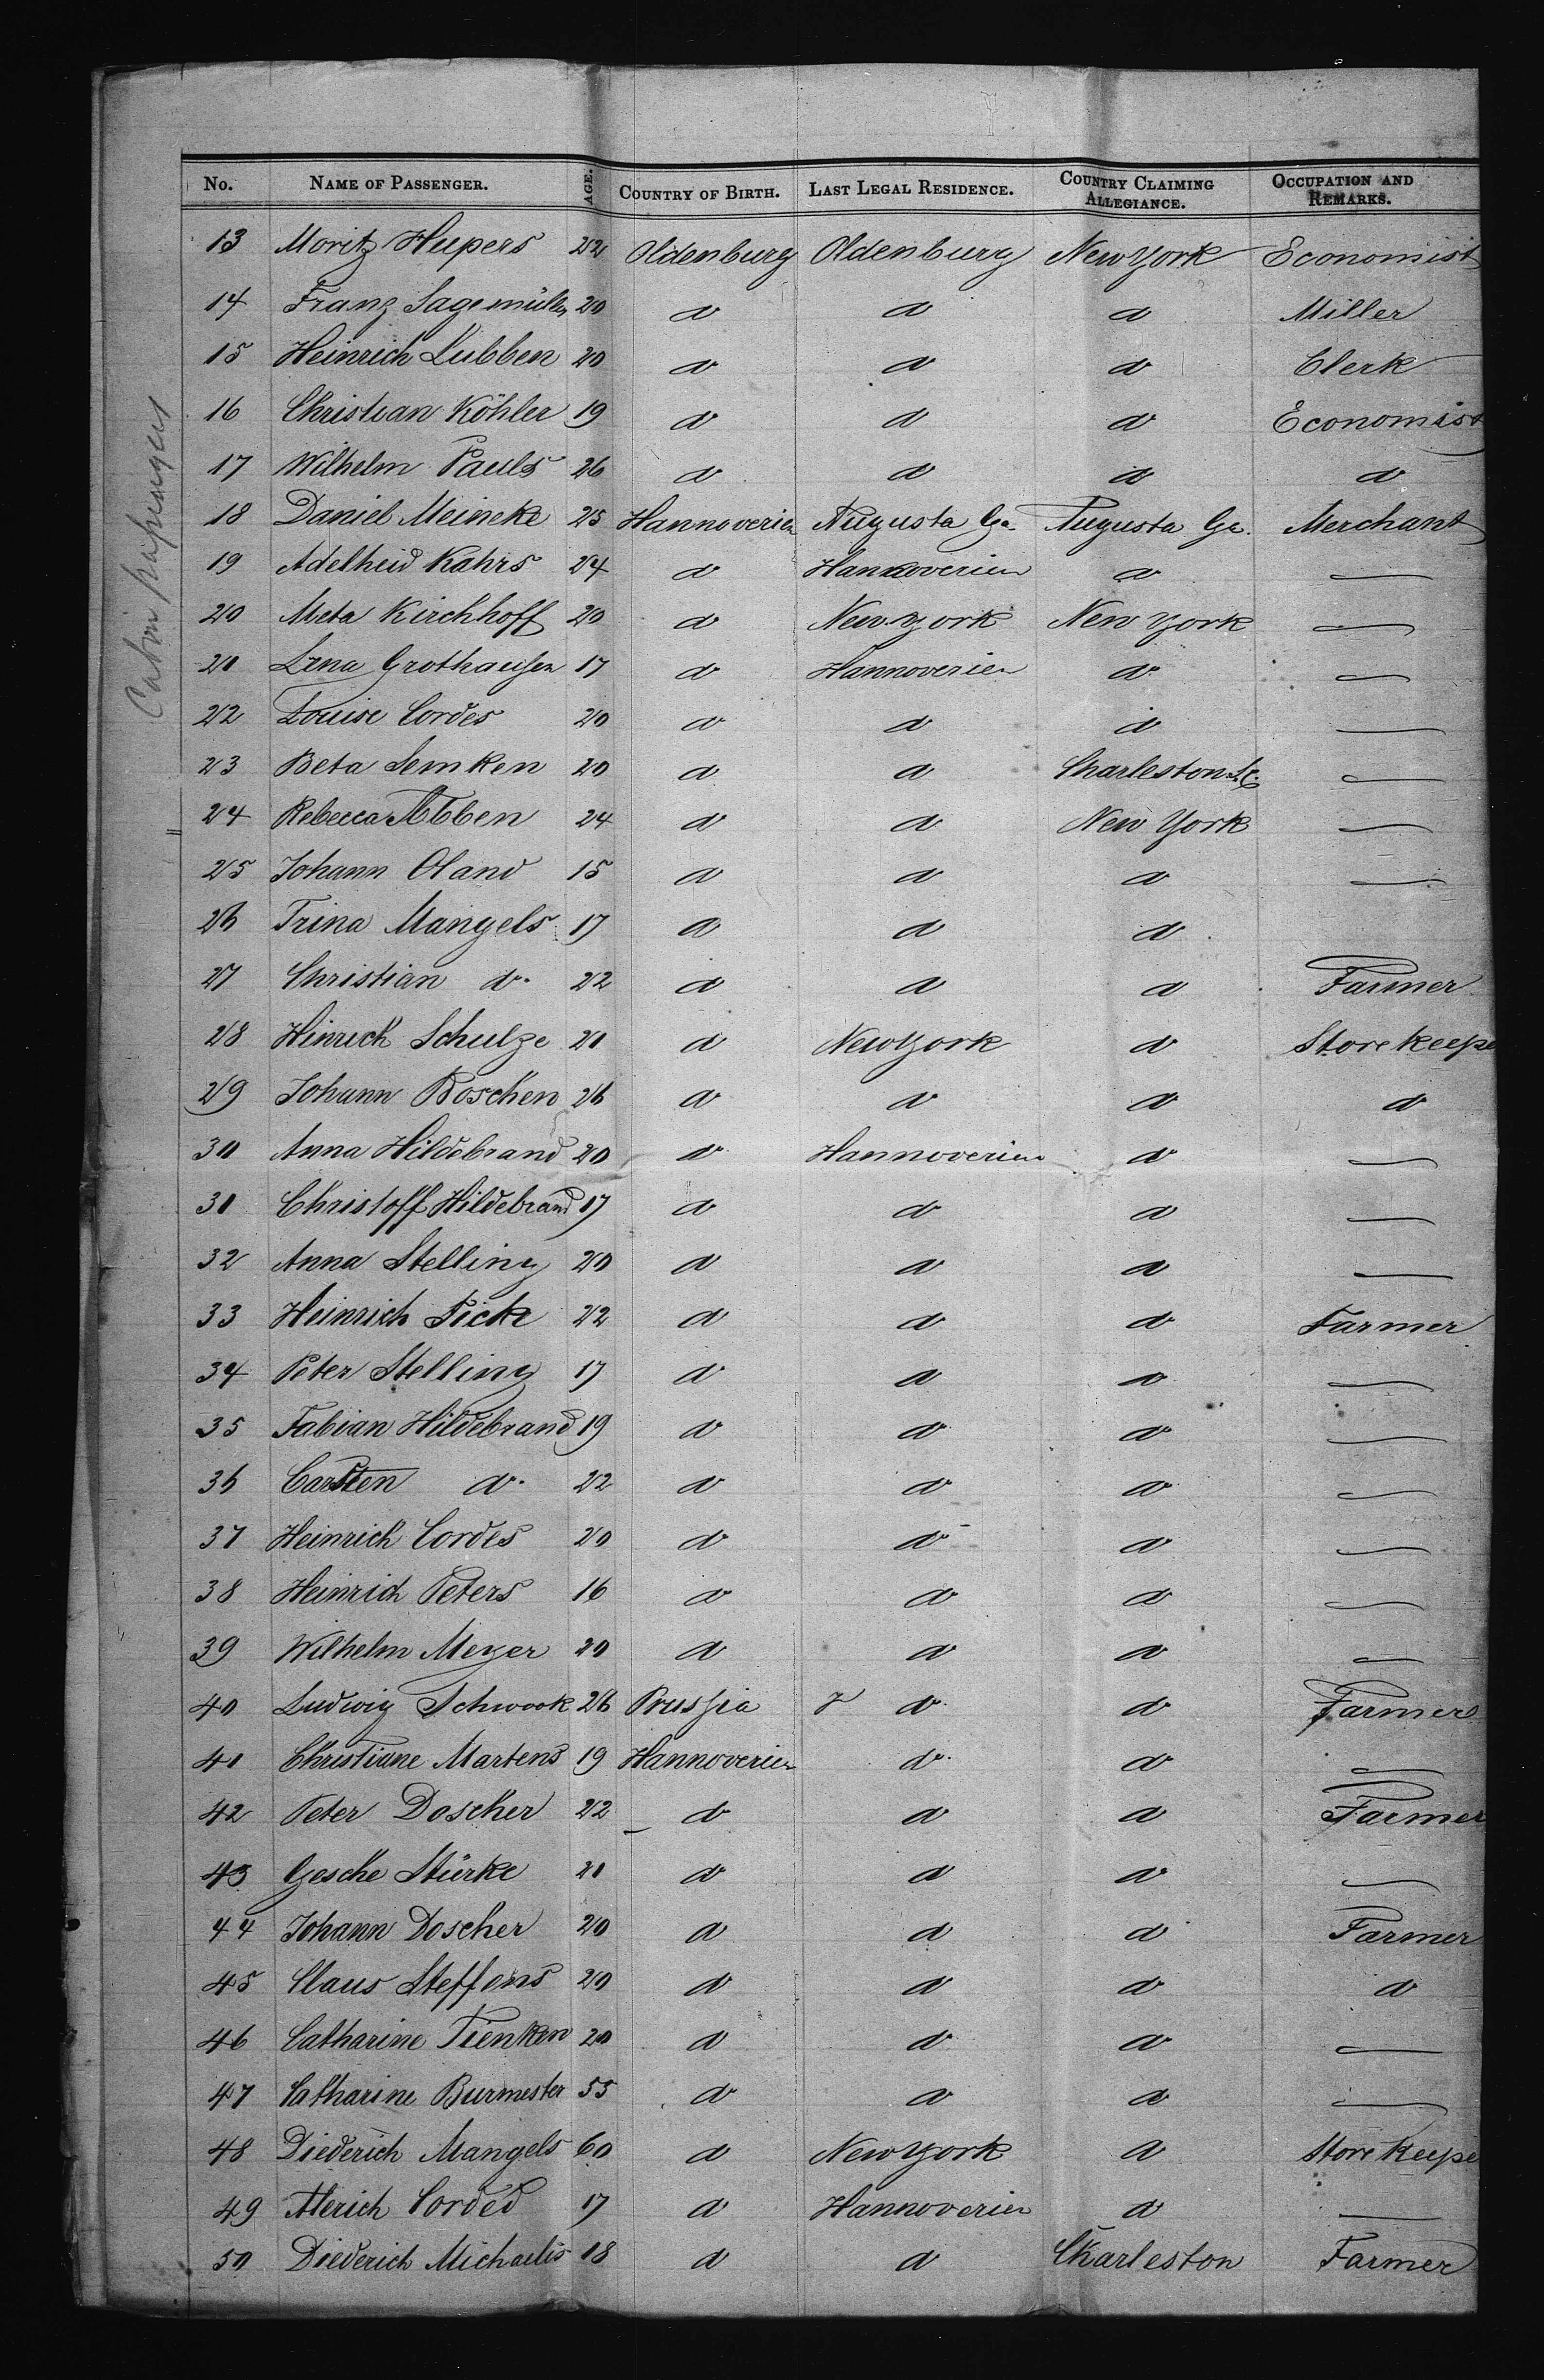 No. NAME OF PASSENGER. AGE. COUNTRY OF BIRTH. LAST LEGAL RESIDENCE. COUNTRY CLAIMING ALLEGIANCE. OCCUPATION AND REMARKS.
Cabin passengers
13 Moritz Hupers 22 Oldenburg Oldenburg New York Economist
14 Franz Sagemüller 20 do do do Miller
15 Heinrich Lubben 20 do do do Clerk
16 Christian Köhler 19 do do do Economist
17 Wilhelm Pauls 26 do do do do
18 Daniel Meineke 25 Hannoverien Augusta Ga. Augusta Ga. Merchant
19 Adelheid Kahrs 24 do Hannoverien do —
20 Meta Kirchhoff 20 do New York New York —
21 Lena Grothausen 17 do Hannoverien do —
22 Louise Cordes 20 do do do —
23 Beta Lemken 20 do do Charleston S.C. —
24 Rebecca Abben 24 do do New York —
25 Johann Oland 15 do do do —
26 Trina Mangels 17 do do do
27 Christian do. 22 do do do Farmer
28 Hinrich Schulze 21 do New York do Store keepe
29 Johann Boschen 26 do do do do
30 Anna Hildebrand 20 do Hannoverien do —
31 Christoff Hildebrand 17 do do do —
32 Anna Stelling 20 do do do —
33 Heinrich Fick 22 do do do Farmer
34 Peter Stelling 17 do do do —
35 Fabian Hildebrand 19 do do do —
36 Carsten do. 22 do do do —
37 Heinrich Cordes 20 do do do —
38 Heinrich Peters 16 do do do —
39 Wilhelm Meyer 20 do do do —
40 Ludwig Schwook 26 Prussia do do Farmer
41 Christiane Martens 19 Hannoverien do do —
42 Peter Doscher 22 do do do Farmer
43 Gesche Stürke 21 do do do —
44 Johann Doscher 20 do do do Farmer
45 Claus Steffens 20 do do do do
46 Catharine Tienken 20 do do do —
47 Catharine Burmester 55 do do do —
48 Diederich Mangels 60 do New York do Store keepe
49 Alerich Cordes 17 do Hannoverien do —
50 Diederich Michaelis 18 do do Charleston Farmer